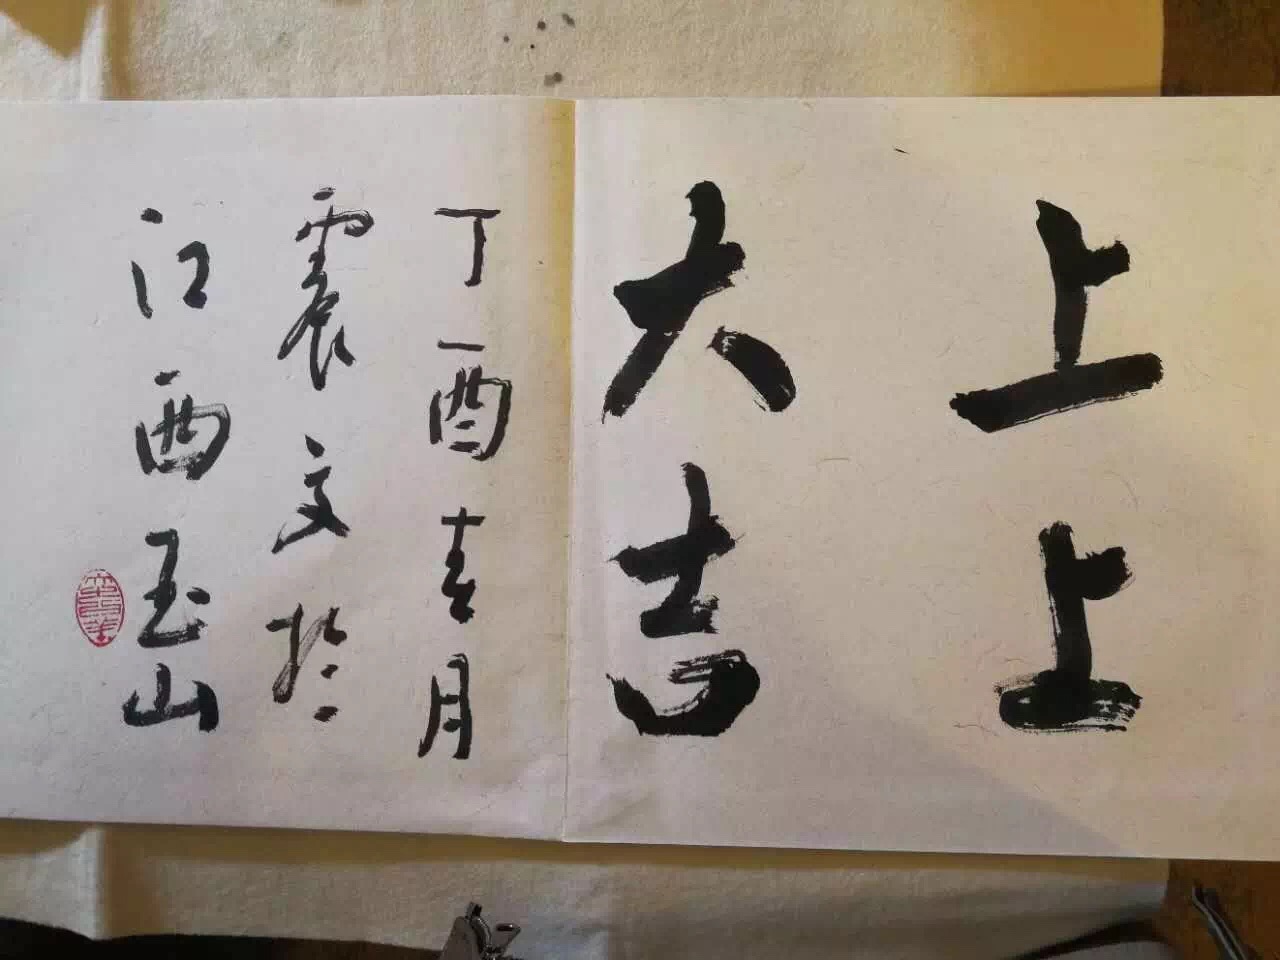 上上
大吉
丁酉春月
震文於
江西玉山